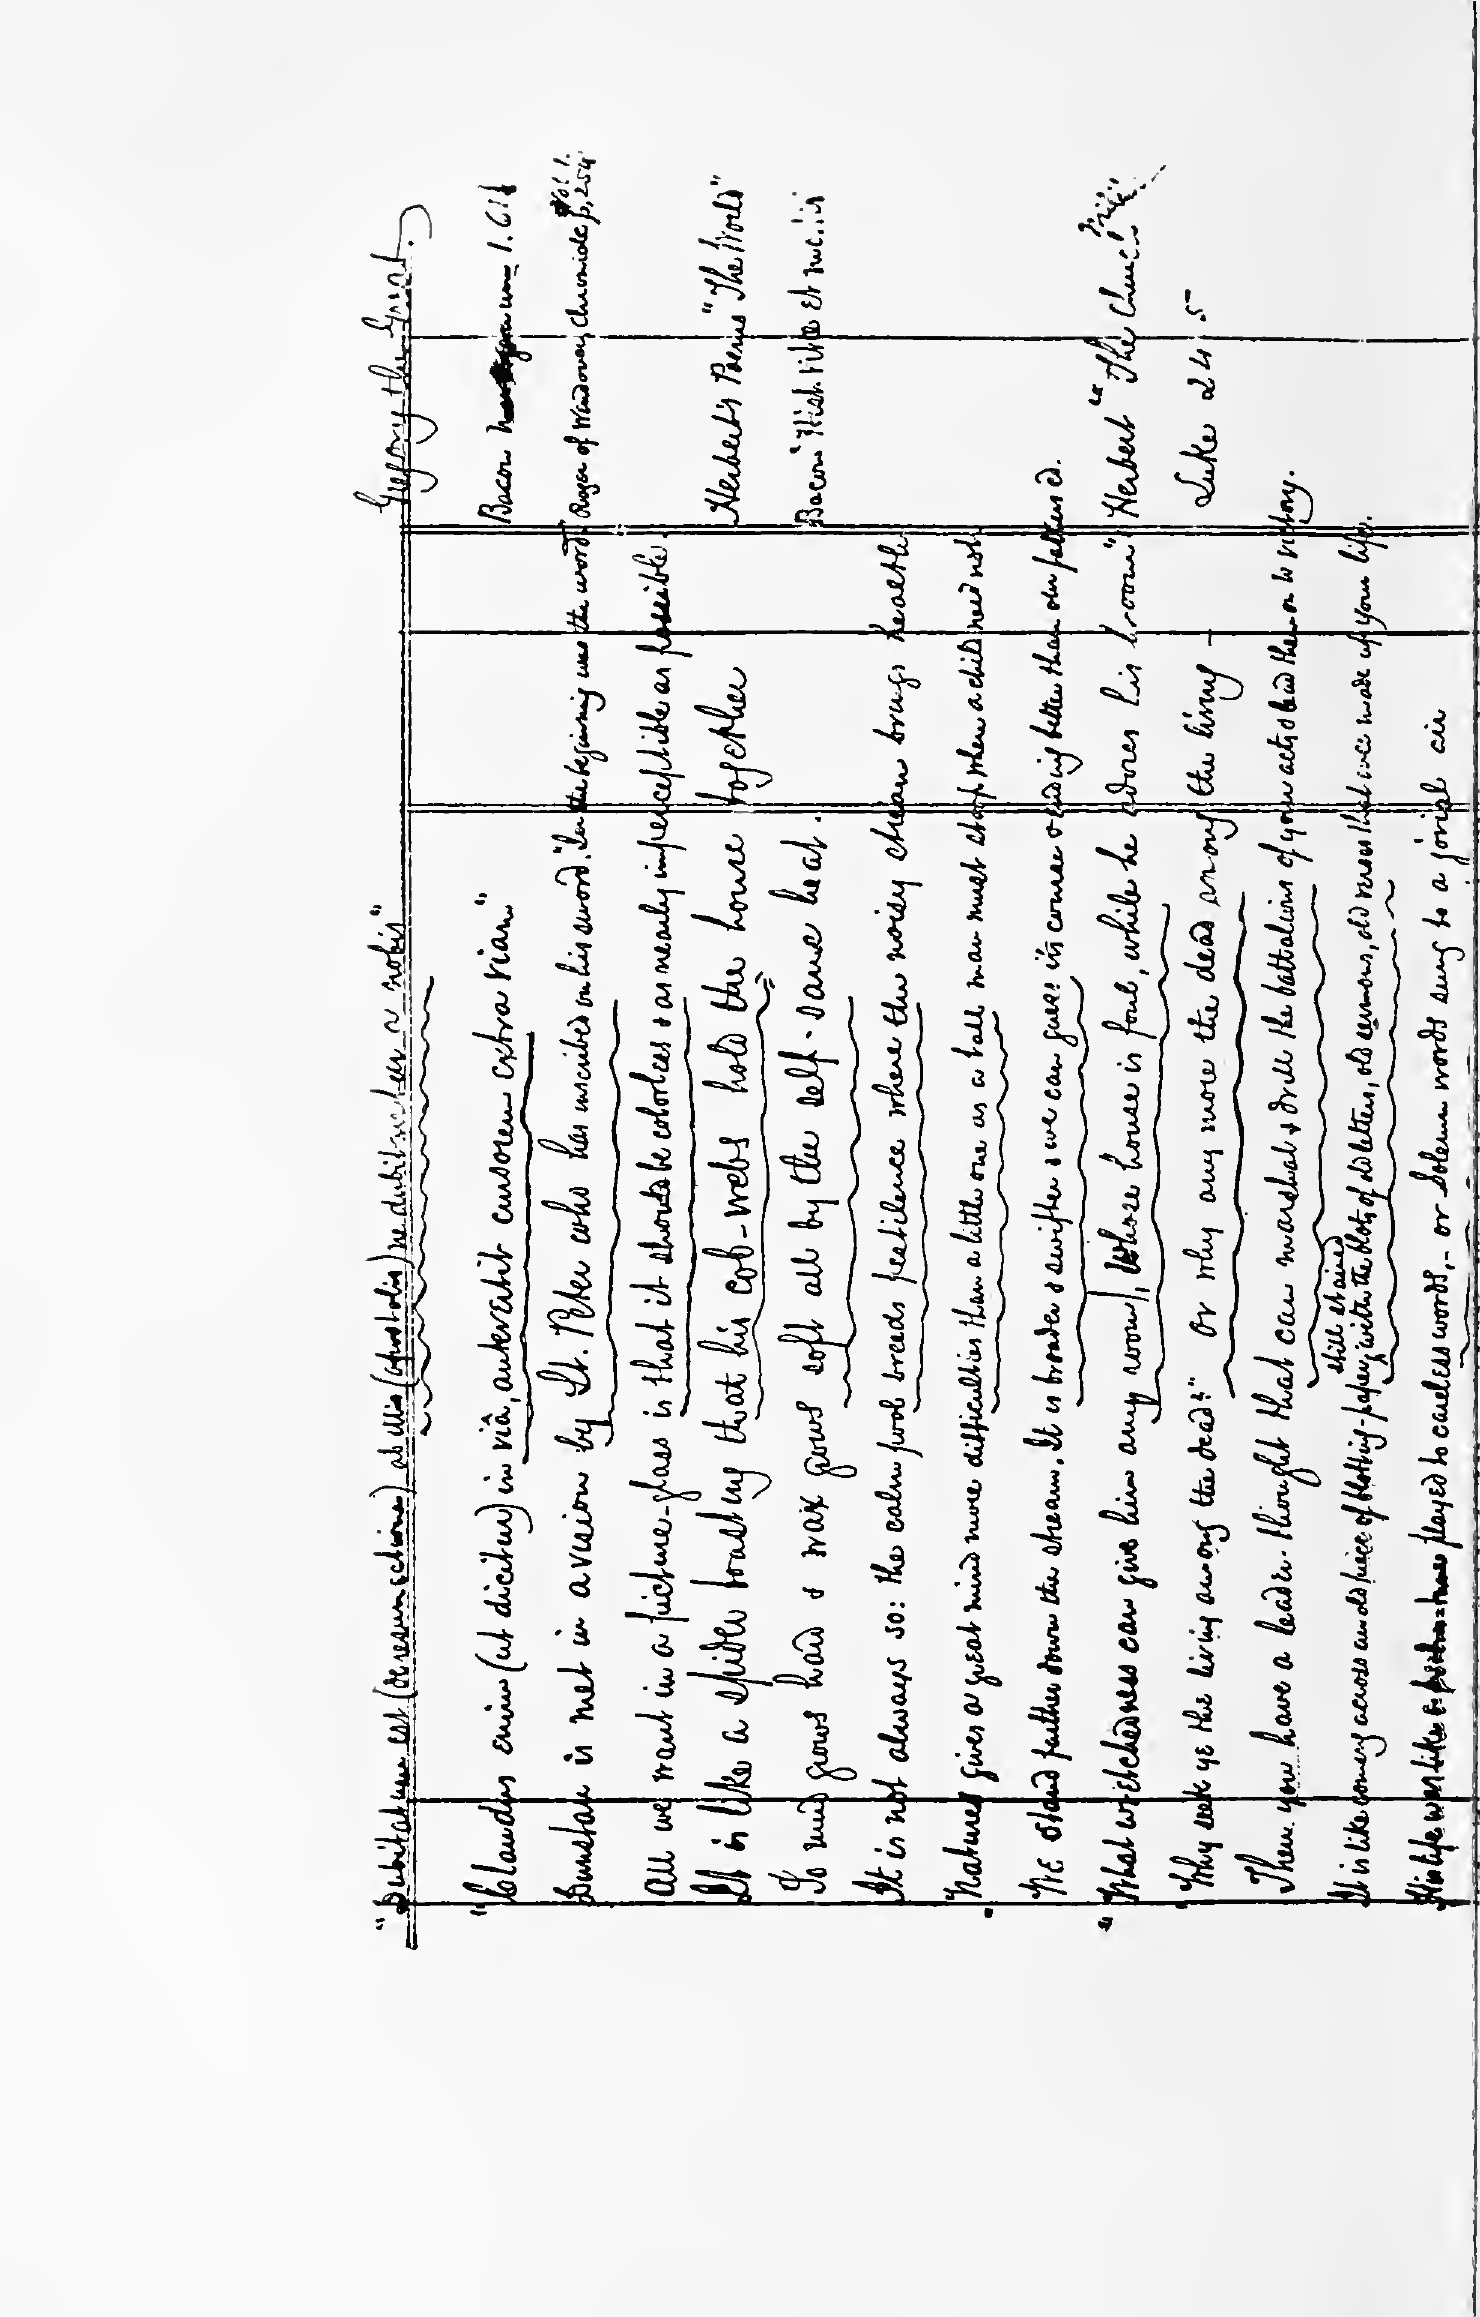 "Dubitatum est (de resurrectione) ab illis (apostolis) ne dubitaretur a nobis" Gregory the Great.
"Claudus enim (ut dicitur) in viâ, antevertit cursorem extra viam" Bacon 1.61
Dunstan is met in a vision by St. Peter who has inscribed on his sword. "In the beginning was the word" Roger of Wendover, Chronicle Vol 1. p. 254
All we want in a picture-glass is that it should be colorless & as nearly imperceptible as possible.
It is like a spider boasting that his cob-webs hold the house together Herbert's Poems "The World"
So mud grows hard & wax grows soft all by the self-same heat. Bacon "Hist. Vitæ et
It is not always so: the calm pool breeds pestilence where the noisy stream brings health
"Nature gives a great mind more difficulties than a little one as a tall man must stoop where a child need not
We stand farther down the stream. It is broader & swifter & we can guess its course & ending better than our fathers cd.
"What wretchedness can give him any room, whose house is foul, while he adores his broom" Herbert "The Church
"Why seek ye the living among the dead?" or why any more the dead among the living – Luke 24.5
Then you have a leader-thought that can marshal & drill the battalions of your acts & lead them on to victory.
It is like coming across an old piece of blotting-paper, still stained with the blots of old letters, old sermons, old verses that once made up your life.
His life was like played to careless words, - or solemn words sung to a jovial air